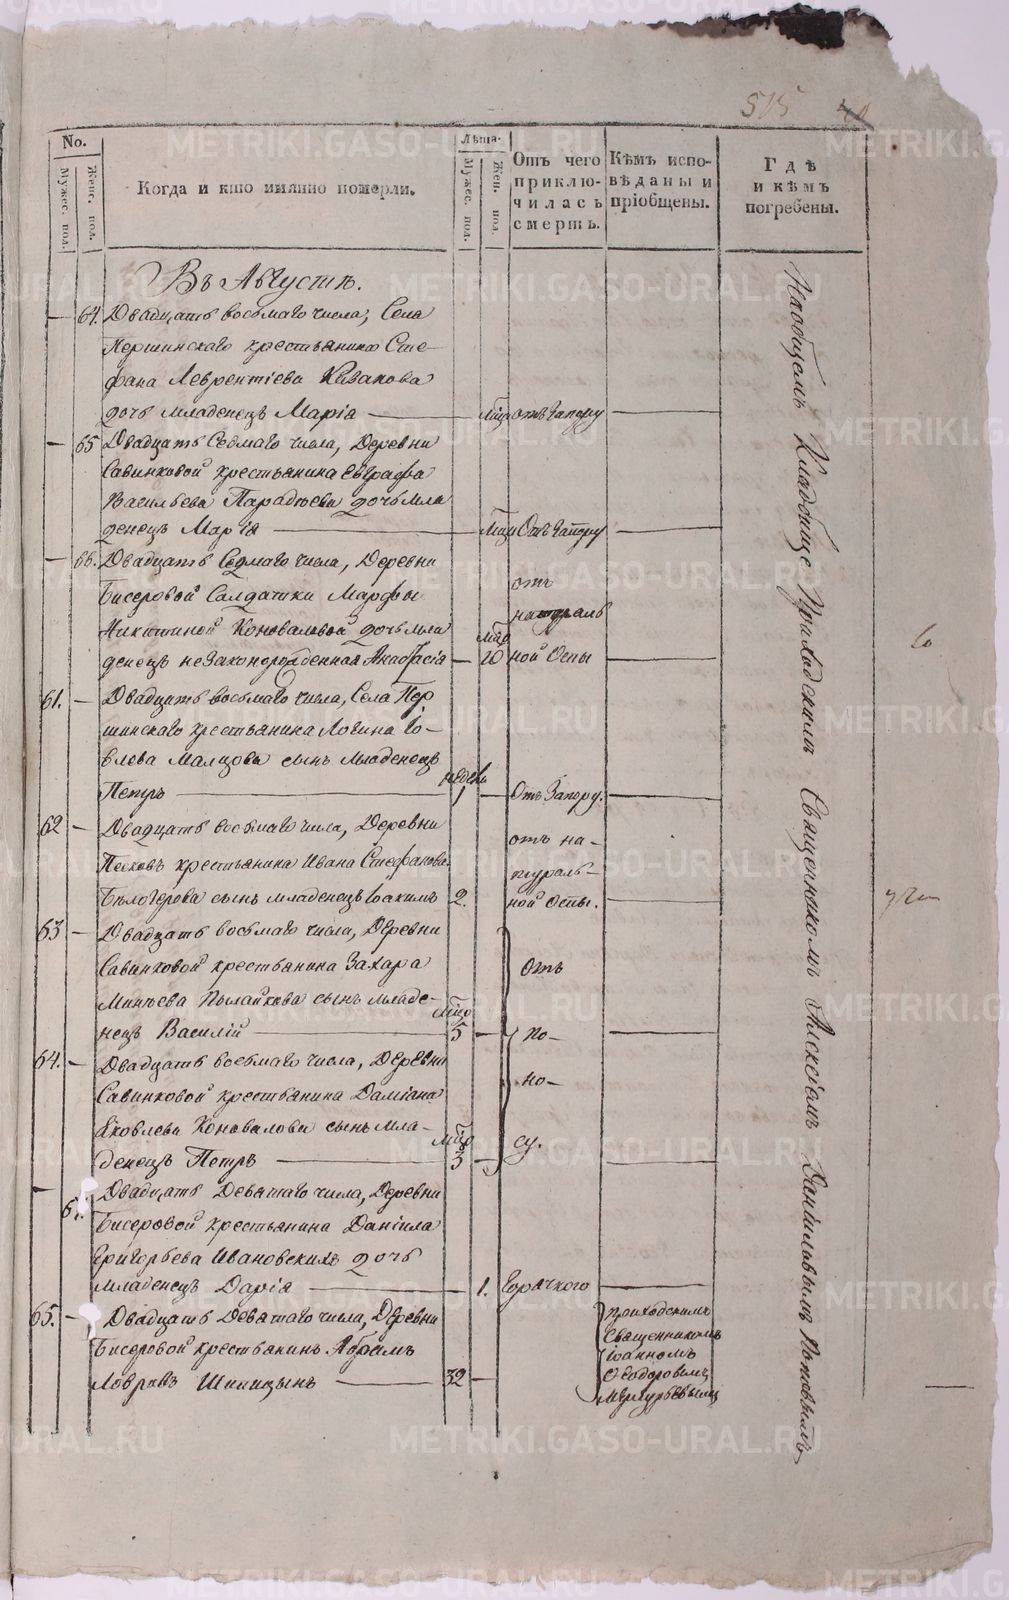 515
No.
Мужес. пол.
Женс. пол.
Когда и кто имянно померли.
Лѣта.
Мужес. пол.
Жен. пол.
Отъ чего
приклю-
чилась
смерть.
Кѣмъ испо-
вѣданы и
пріобщены.
Гдѣ
и кѣмъ
погребены.
Въ Августѣ.
64. Двадцать восьмаго числа, Села
Першинскаго крестьянина Сте-
фана Леврентіева Казакова
дочь младенецъ Марія отъ запору
65 Двадцать Седьмаго числа, Деревни
Савинковой крестьянина Евграфа
Васильева дочь мла
денецъ Марія Отъ запору
66. Двадцать Седмаго числа, Деревни
Бисеровой Салдатки Марфы
Никитиной Коноваловой дочь мла
денецъ незаконорожденная 10
отъ
натураль
ной Оспы
61. Двадцать восьмаго числа, Села Пер
шинскаго крестьянина Логина Іо-
влева Малцова сынъ младенецъ
Петръ 1 Отъ Запору.
62 Двадцать восьмаго числа, Деревни
Песковъ крестьянина Ивана Стефанова
Бѣлозерова сынъ младенецъ Іоакимъ 2.
отъ на-
тураль-
ной Оспы.
63 Двадцать восьмаго числа, Деревни
Савинковой крестьянина Захара
Минѣева сынъ младе-
нецъ Василій 5
64. Двадцать восьмаго числа, Деревни
Савинковой крестьянина Даміана
Яковлева Коновалова сынъ мла-
денецъ Петръ 3
Отъ
по-
но-
су.
Двадцать Девятаго числа, Деревни
Бисеровой крестьянина Даніила
Григорьева Ивановскихъ дочь
младенецъ Дарія 1. Горячкого
65. Двадцать Девятаго числа, Деревни
Бисеровой крестьянинъ Абрамъ
Лавровъ Шипицынъ 32
приходскимъ
Священникомъ
Іоанномъ
Ѳеодоровымъ
Меркурьевымъ
На общемъ Кладбище Приходскимъ Священникомъ Алексіемъ Даниловымъ Поповымъ
METRIKI.GASO-URAL.RU